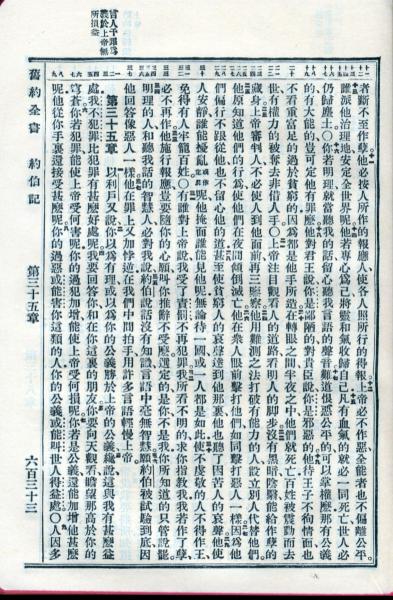 者斷不至作孽他必按人所作的報應人使各人照所行的得報上帝必不作惡全能者也不偏離公平
誰派他治理地安定全世界呢他若專心為己將靈和氣收歸自己凡有血氣的就必一同死亡世人必
仍歸塵土○你若明理就當聽我的話留心聽我言語的聲音難道恨惡公平的可以掌權麼那有公義
的有大能的豈可定他有罪麼他對君王說你是鄙陋的對貴臣說你是邪惡的他待王子不徇情面也
不看重富足的過於貧窮的因為都是他手所造在轉眼之間半夜之中他們就死亡百姓被震動而去
世有權力的被奪去非借人手○上帝注目觀看人的道路看明人的腳步沒有黑暗陰翳能給作孽的
藏身上帝審判人不必使人到他面前再三鑒察他用難測之法打破有能力的人設立別人代替他們
他原知道他們的行為使他們在夜間傾倒滅亡他在眾人眼前擊打他們如同擊打惡人一樣因為他
們偏行不跟從他也不留心他的道甚至使貧窮人的哀聲達到他那裏他也聽了困苦人的哀聲他使
人安靜誰能擾亂或作定罪呢他掩面誰能見他呢無論待一國或一人都是如此使不虔敬的人不得作王
免得有人牢籠百姓○有誰對上帝說我受了責罰不再犯罪我所看不明的求你指教我我若作了孽
必不再作他施行報應豈要隨你的心願叫你推辭不受麼選定的是你不是我你所知道的只管說罷
明理的人和聽我話的智慧人必對我說約伯說話沒有知識言語中毫無智慧願約伯被試驗到底因
他回答像惡人一樣他在罪上又加悖逆在我們中間拍手用許多言語輕慢上帝
第三十五章 以利戶又說你以為有理或以為你的公義勝於上帝的公義纔說這與我有甚麼益
處我不犯罪比犯罪有甚麼好處呢我要回答你和在你這裏的朋友你要向天觀看瞻望那高於你的
穹蒼你若犯罪能使上帝受何害呢你的過犯加增能使上帝受何損呢你若是公義還能加增他甚麼
呢他從你手裏還接受甚麼呢你的過惡或能害你這類的人你的公義或能叫世人得益處○人因多
舊約全書 約伯記 第三十五章 六百三十三